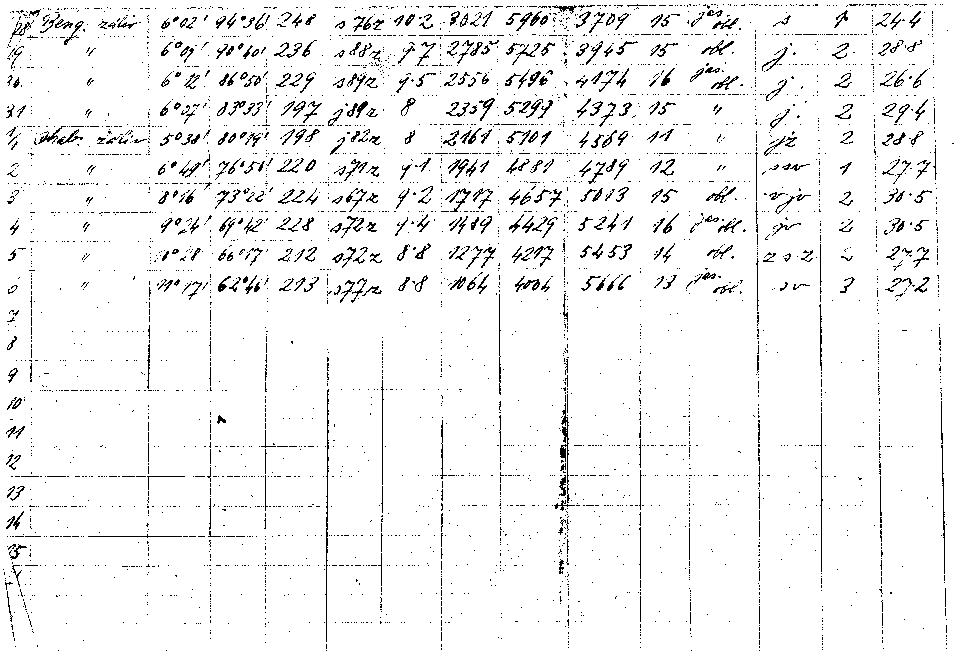 28 Beng. záliv 6°02' 94°36' 248 s76z 10·2 3021 5960 3709 15 jas. obl. s 1 24·4
29 " 6°07' 90°40' 236 s88z 9·7 2785 5725 3945 15 obl. j. 2 28·8
30. " 6°12' 86°50' 229 s89z 9·5 2556 5496 4174 16 jas. obl. j. 2 26·6
31 " 6°07' 83°33' 197 j89z 8 2359 5297 4373 15 " j. 2 29·4
1/1 záliv 5°38' 80°19' 198 j82z 8 2161 5101 4569 11 " jz 2 28·8
2 " 6°49' 76°50' 220 s71z 9·1 1941 4881 4789 12 " ssv 1 27·7
3 " 8°16' 73°22' 224 s67z 9·2 1717 4657 5013 15 obl. vjv 2 30·5
4 " 9°24' 69°42' 228 s72z 9·4 1489 4429 5241 16 jas. obl. jv 2 30·5
5 " 10°28' 66°17' 212 s72z 8·8 1277 4217 5453 14 obl. zsz 2 27·7
6 " 11°17' 62°46' 213 s77z 8·8 1064 4004 5666 13 jas. obl. sv 3 27·2
7
8
9
10
11
12
13
14
15